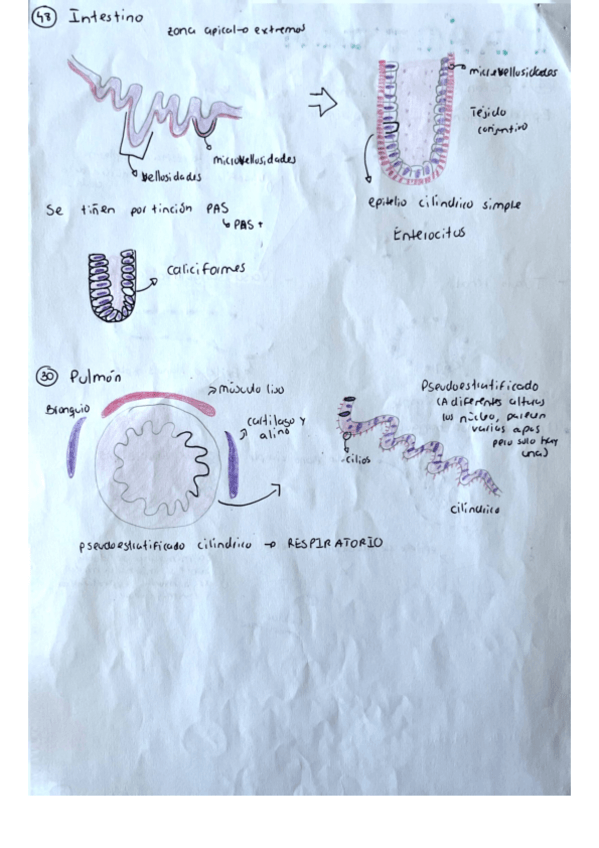 48 Intestino
zona apical → extremos
microvellosidades
Tejido
conjuntivo
microvellosidades
vellosidades
epitelio cilindrico simple
Enterocitos
Se tiñen por tinción PAS
↳ PAS +
caliciformes
30 Pulmón
→ músculo liso
Bronquio
cartilago y
alino
Pseudoestratificado
(A diferentes alturas
los núcleo, parecen
varias apas
pero solo hay
una)
cilios
cilindrico
pseudoestratificado cilindrico → RESPIRATORIO